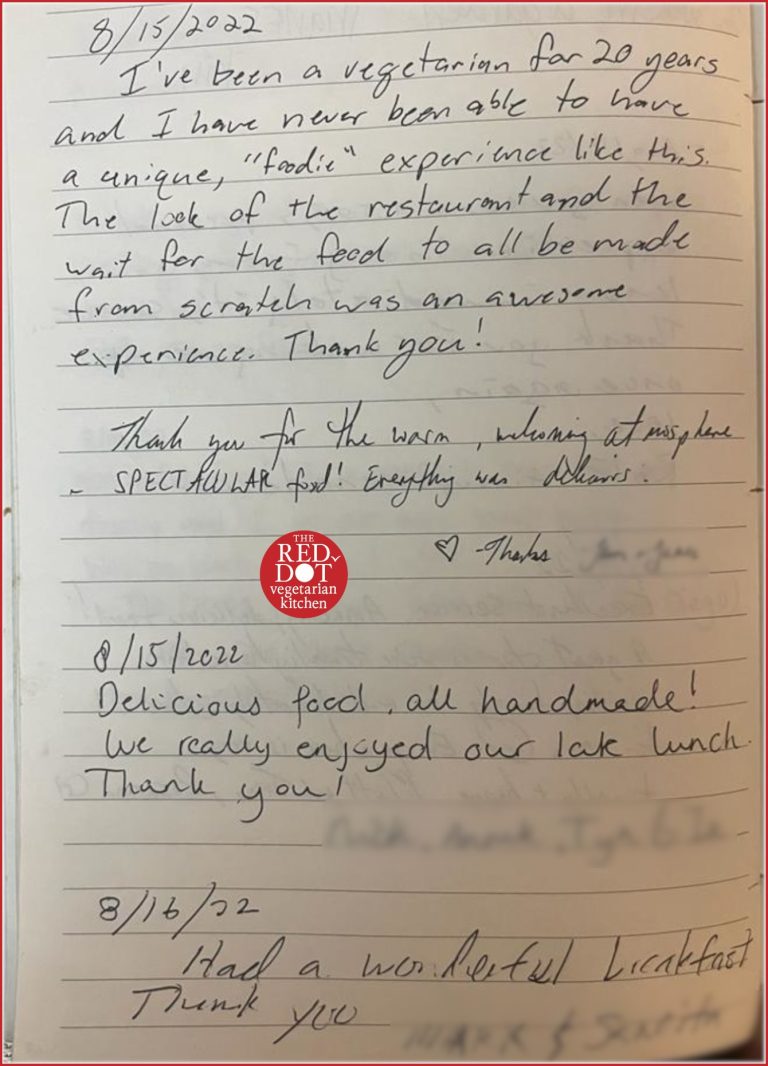 8/15/2022
I've been a vegetarian for 20 years
and I have never been able to have
a unique, "foodie" experience like this.
The look of the restaurant and the
wait for the food to all be made
from scratch was an awesome
experience. Thank you!
Thank you for the warm, welcoming atmosphere
~ SPECTACULAR food! Everything was delicious.
♡ -Thanks
THE
RED
DOT
vegetarian
kitchen
8/15/2022
Delicious food, all handmade!
We really enjoyed our late lunch.
Thank you!
8/16/22
Had a wonderful breakfast
Thank you